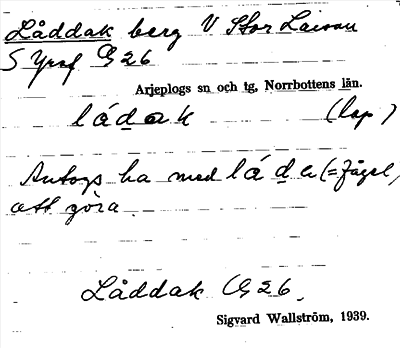 Låddak berg V Stor Laisan
S Yraf G 26
Arjeplogs sn och tg, Norrbottens län.
láḏak (lap)
Antogs ha med láḏe (=fågel,
att göra
Låddak G 26.
Sigvard Wallström, 1939.